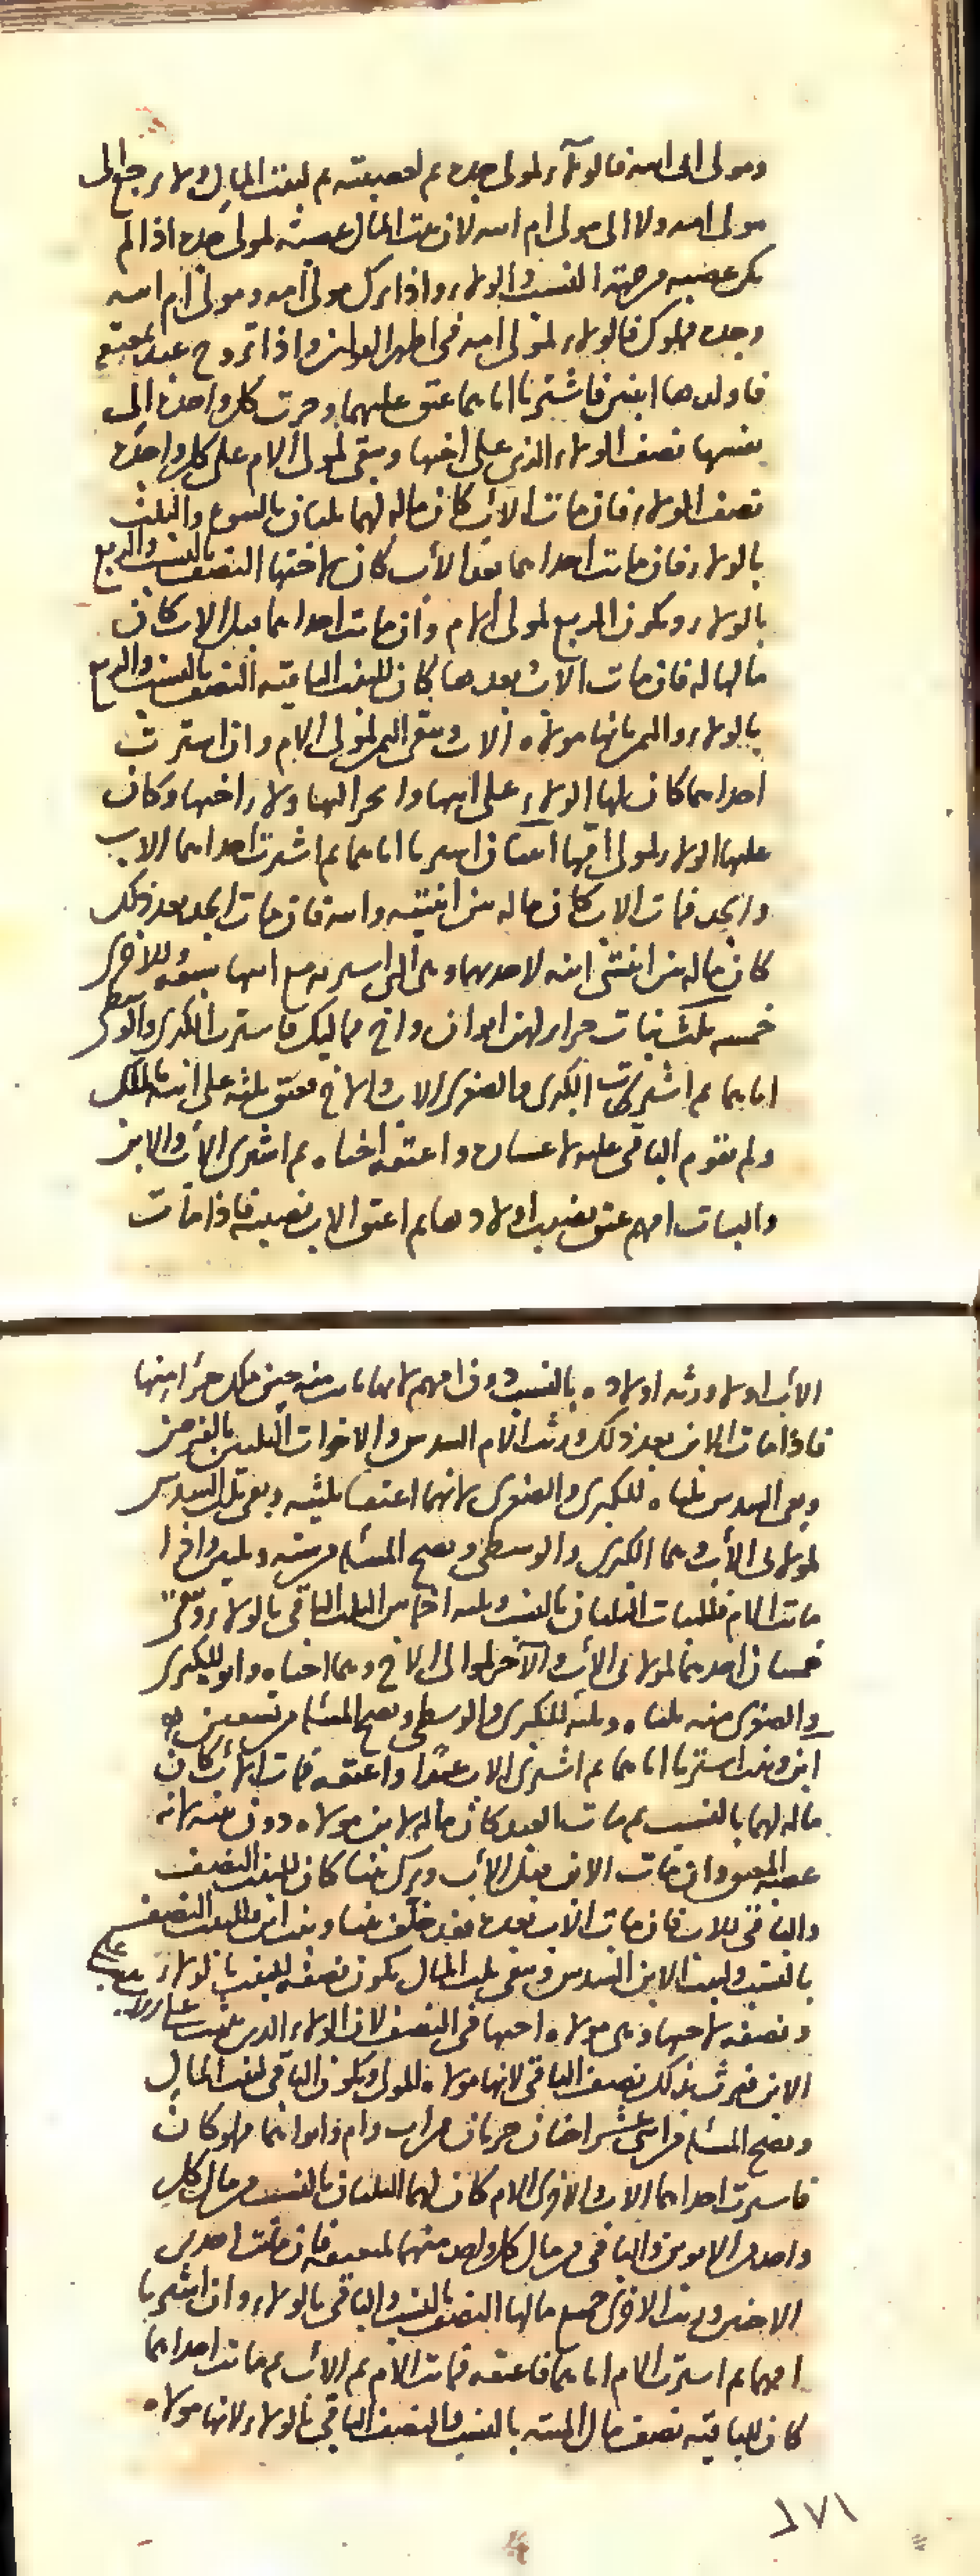 ومولى امه فالولاء لمولى جده ثم لعصبته ثم لبيت المال ولا يرجع الى
مولى امه ولا الى مولى ام امه لان بيت المال عصبة لمولى جده اذا لم
يكن عصبه من جهة النسب والولاء واذا ترك مولى امه ومولى ام امه
وجده مملوك فالولاء لمولى امه في اظهر القولين واذا تزوج عبد بمعتقة
فاولدها ابنتين فاشترتا اباهما عتق عليهما وجرت كل واحدة الى
نفسها نصف الولاء الذي على اختها وبقي لمولى الام على كل واحدة
نصف الولاء فان مات الاب كان ماله لهما ثلثان بالنسب والثلث
بالولاء فان ماتت احداهما بعد الأب كان لاختها النصف بالنسب والربع
بالولاء ويكون الربع لمولى الام وان ماتت احداهما قبل الاب كان
مالها له فان مات الاب بعدها كان للبنت الباقية النصف بالنسب والربع
بالولاء والثمن بانها مولاة الاب وبقي الثمن لمولى الام وان اشترت
احداهما كان لها الولاء على ابيها وانجر اليها ولاء اختها وكان
عليها الولاء لمولى امها ابنتان اشترتا اباهما ثم اشترت احداهما والاب
والجد فمات الاب كان ماله بين ابنتيه وابيه فان مات الجد بعد ذلك
كان ماله بين ابنتي ابنه
خمسه ثلث بنات حراير لهن ابوان واخ مماليك فاشترت الكبرى والوسطى
اباهما ثم اشترت الكبرى والصغرى والاب الاخ فعتق ثلثه على ابيه بالملك
ولم يقوم الباقي عليه لاعساره واعتقه اختاه ثم اشترى الأب والابن
والبنات امهم عتق نصيب اولادها ثم اعتق الاب نصيبه فاذا مات
الأب اولا ورثه اولاده بالنسب دون امهم لانها بانت منه حين ملك جزءا منها
فاذا مات الابن بعد ذلك ورثت الام السدس والاخوات الثلثين بالفرض
وبقي السدس ثلثاه للكبرى والصغرى لانهما اعتقا ثلثيه وبقي ثلث السدس
لموالى الأب وهما الكبرى والوسطى وتصح المسئلة من ستة وثلثين واذا
ماتت الام فللبنات الثلثان بالنسب وثلثه اخماس الثلث الباقي بالولاء وبقي
خمسان احدهما لموالى الأب والآخر لموالى الاخ وهما اختاه وابوه للكبرى
والصغرى منه ثلثاه وثلثه للكبرى والوسطى وتصح المسئلة من تسعين
ابن وبنت اشتريا اباهما ثم اشترى الاب عبدا واعتقه فمات الأب كان
ماله لهما بالنسب ثم مات العبد كان ماله لابن مولاه دون بنته لانه
عصبة المعتق وان مات الابن قبل الأب وترك بنتا كان للبنت النصف
والباقي للاب فان مات الأب بعده فقد خلف بنتا وبنت ابن فللبنت النصف
بالنسب ولبنت الابن السدس وبقي ثلث المال يكون نصفه للبنت بالولاء
ونصفه لاخيها وهي مولاة اخيها في النصف لان الولاء الذي
الابن فترث بذلك نصف الباقي لانها مولاة المولى ويكون الباقي لبيت المال
وتصح المسئلة من اثنى عشر اختان حرتان من اب وام وابواهما مملوكان
فاشترت احداهما الاب والاخرى الام كان لهما الثلثان بالنسب من مال كل
واحد من الابوين والباقي من مال كل واحد منهما لمعتقه فان ماتت احدى
الاختين ورثت الاخرى جميع مالها النصف بالنسب والباقي بالولاء وان اشترتا
امهما ثم اشترت الام اباهما فاعتقه فماتت الام ثم الأب ثم ماتت احداهما
كان للباقية نصف مال الميتة بالنسب والنصف الباقي بالولاء لانها مولاة
١٧١